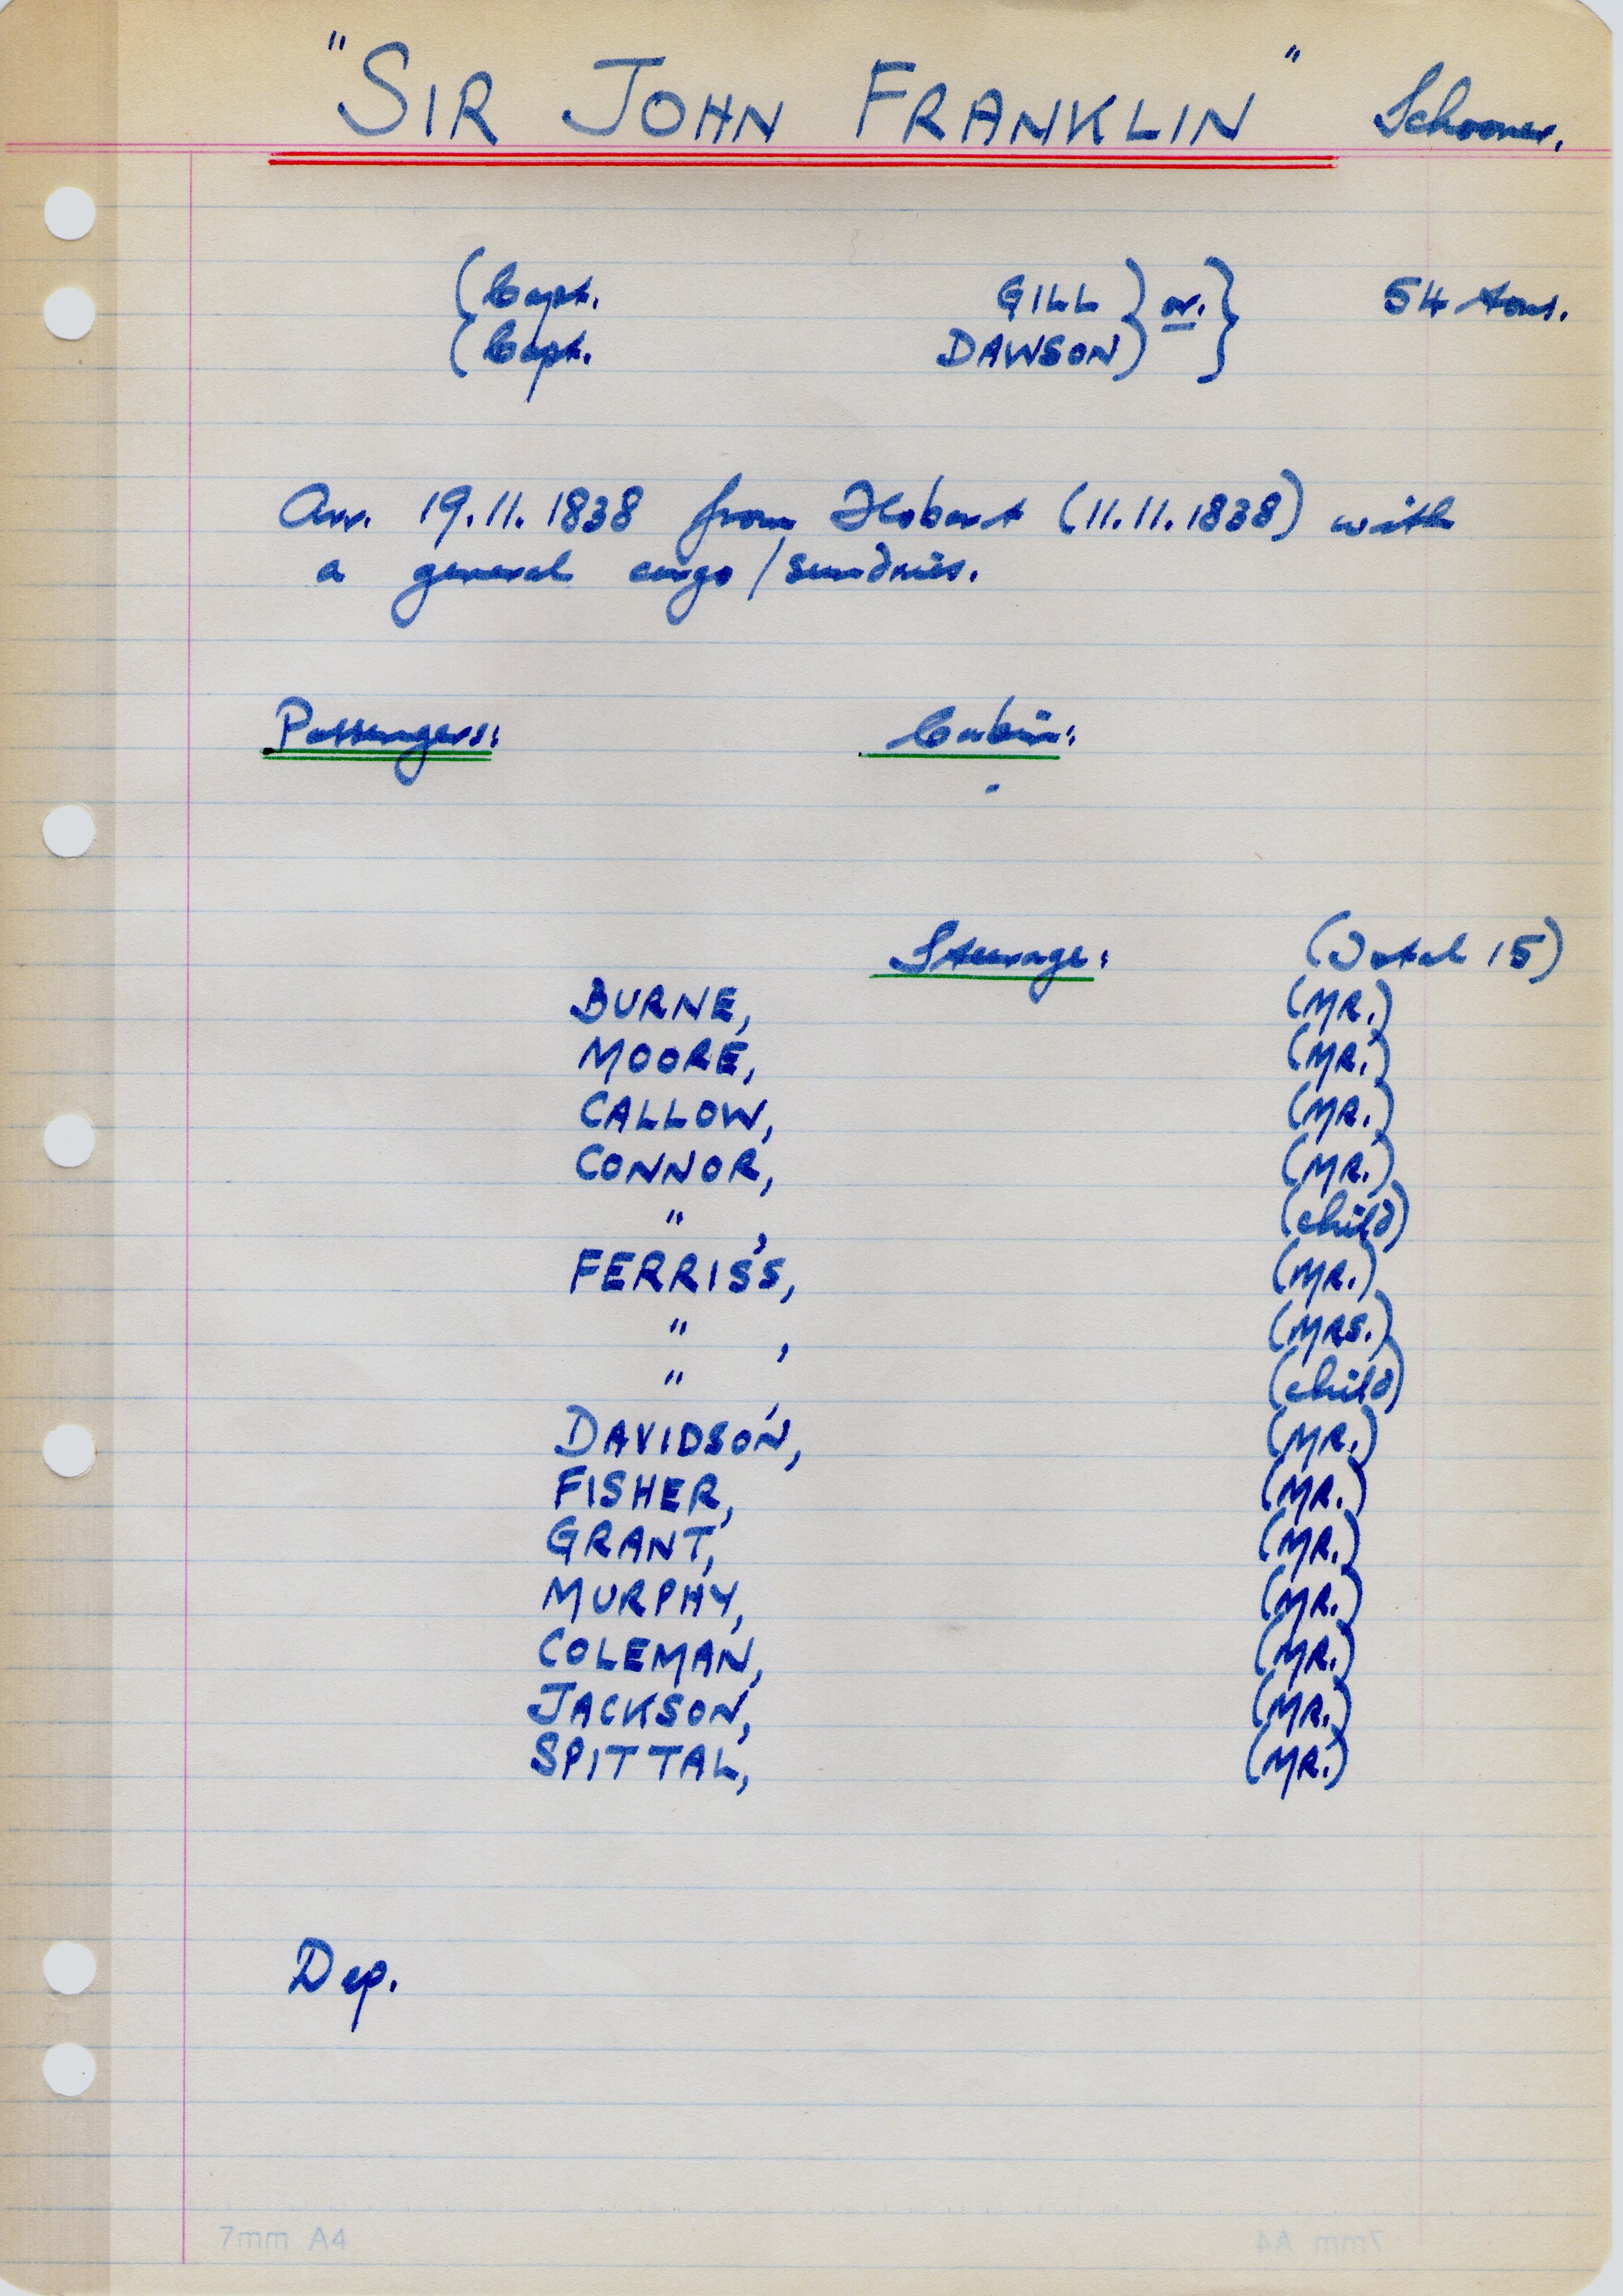 "SIR JOHN FRANKLIN" Schooner.
(Capt. GILL) or. } 54 tons.
(Capt. DAWSON)
Arr. 19.11.1838 from Hobart (11.11.1838) with
a general cargo/sundries.
Passengers: Cabin:
Steerage: (Total 15)
BURNE, (MR.)
MOORE, (MR.)
CALLOW, (MR.)
CONNOR, (MR.)
" , (child)
FERRISS, (MR.)
" , (MRS.)
" , (child)
DAVIDSON, (MR.)
FISHER, (MR.)
GRANT, (MR.)
MURPHY, (MR.)
COLEMAN, (MR.)
JACKSON, (MR.)
SPITTAL, (MR.)
Dep.
7mm A4